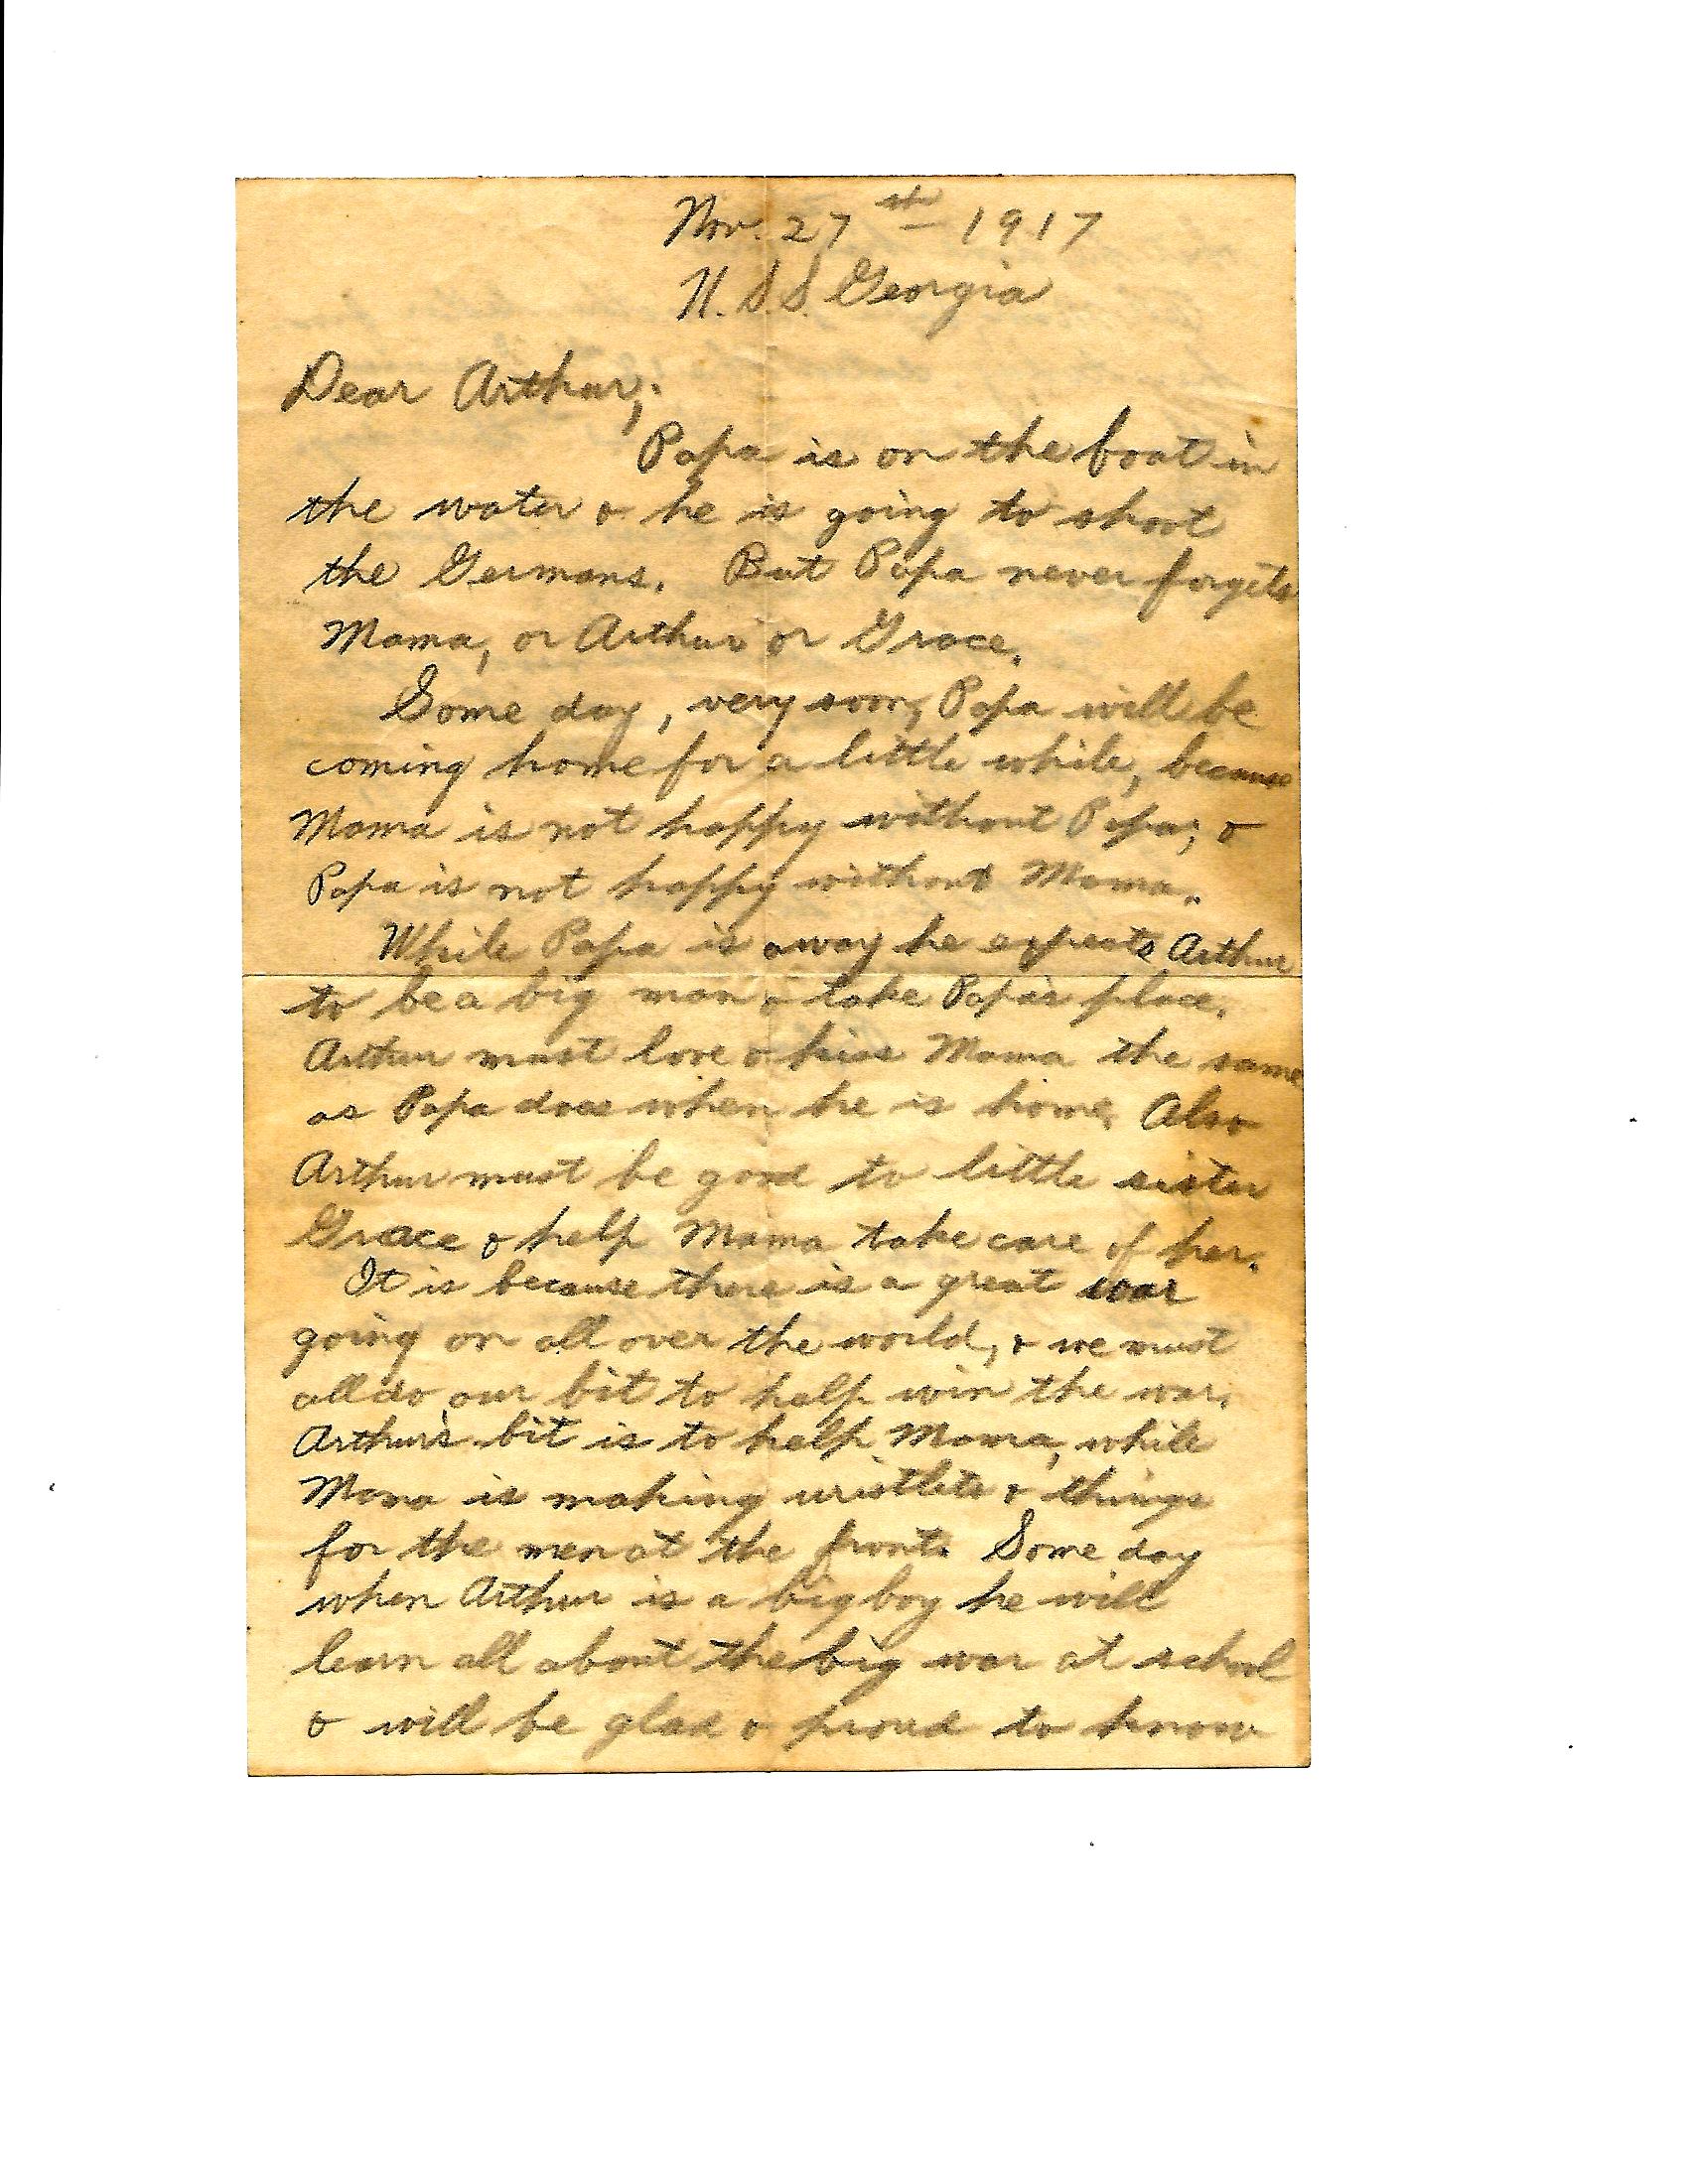 Nov. 27th 1917
U.S.S. Georgia
Dear Arthur;
Papa is on the boat in
the water & he is going to shoot
the Germans. But Papa never forgets
Mama, or Arthur or Grace.
Some day, very soon, Papa will be
coming home for a little while, because
Mama is not happy without Papa; &
Papa is not happy without Mama.
While Papa is away he expects Arthur
to be a big man & take Papa's place.
Arthur must love & kiss Mama the same
as Papa does when he is home. Also
Arthur must be good to little sister
Grace & help Mama take care of her.
It is because there is a great war
going on all over the world, & we must
all do our bit to help win the war.
Arthur's bit is to help Mama, while
Mama is making wristlets & things
for the men at the front. Some day
when Arthur is a big boy he will
learn all about the big war at school
& will be glad & proud to know